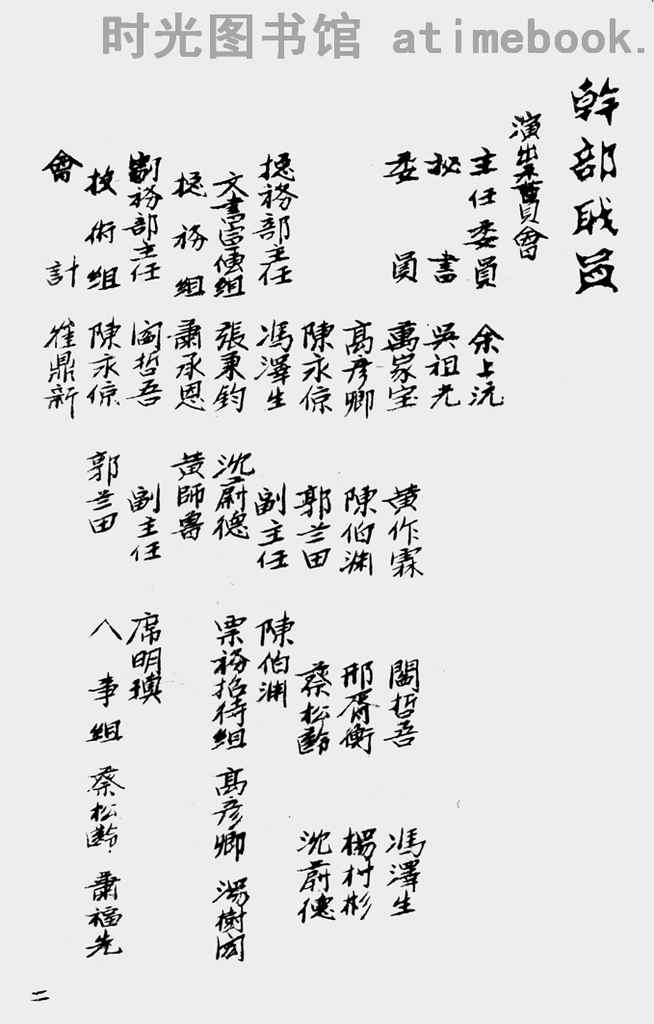 时光图书馆 atimebook.
幹部職員
演出委員會
主任委員 余上沅
秘書 吳祖光
委員 萬家宝 黄作霖 閻哲吾 馮澤生
高彥卿 陳伯淵 邢胥衡 楊村彬
陳永倞 郭兰田 蔡松齡 沈蔚德
總務部主任 馮澤生 副主任 陳伯淵
文書宣傳組 張秉鈞 沈蔚德 票務招待組 高彥卿
總務組 肅承恩 黃師魯
劇務部主任 閻哲吾 副主任 席明瑛
技術組 陳永倞 郭兰田 人事組 蔡松齡 肅福先
會計 崔鼎新
二